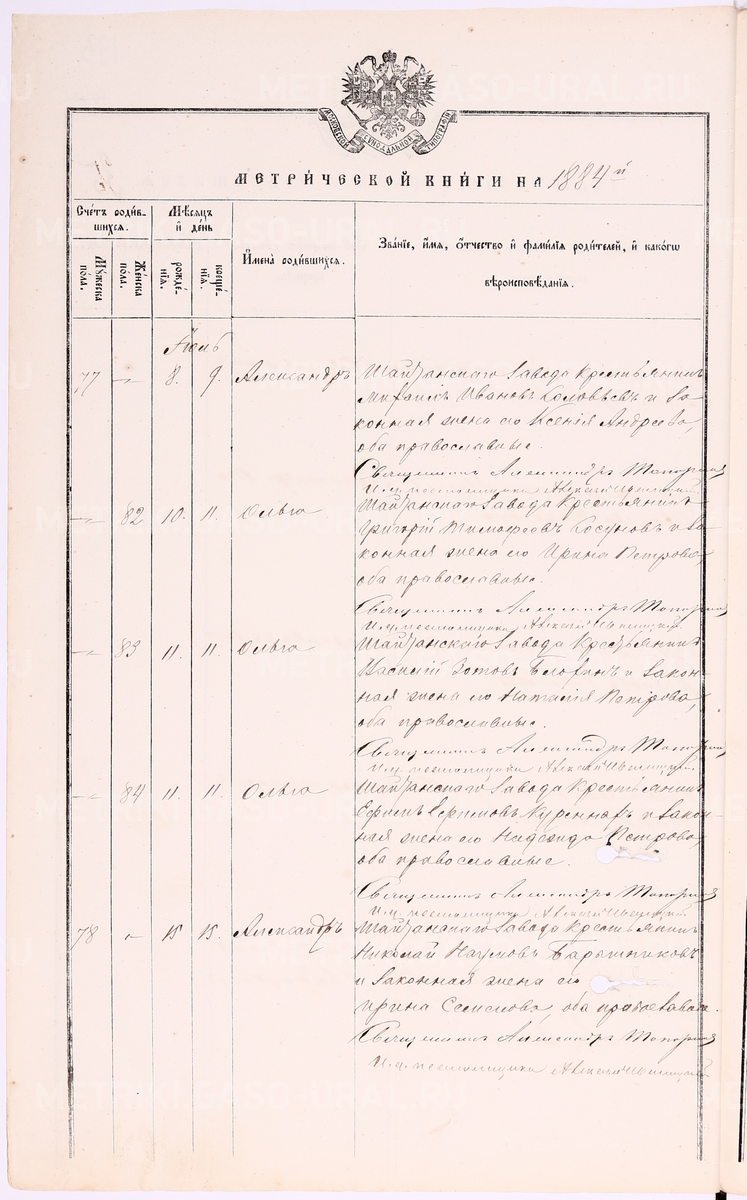 МОСКОВСКОЙ СѴНОДАЛЬНОЙ ТИПОГРАФІИ
МЕТРИ́ЧЕСКОЙ КНИ́ГИ НА 1884й
Сче́тъ роди́в-
шихся.
Му́жеска
по́ла.
Же́нска
по́ла.
Мѣ́сяцъ
и҆ де́нь
рожде́-
нїѧ.
креще́-
нїѧ.
И҆мена̀ роди́вшихся.
Зва́нїе, и҆́мѧ, ѻ҆́тчество и҆ фами́лїѧ роди́телей, и҆ како́гѡ
вѣроисповѣ́данїѧ.
Іюль
77 — 8. 9. Александръ Шайтанскаго завода крестьянинъ
Михаилъ Ивановъ и за
конная жена его Ксенія Андреева,
оба православные.
Священникъ Александръ Топорковъ
И. д. псаломщика Алексѣй
— 82 10. 11. Ольга Шайтанскаго завода крестьянинъ
Григорій Тимофеевъ Косуновъ и за
конная жена его Ирина Петрова,
оба православные.
Священникъ Александръ Топорковъ
И. д. псаломщика Алексѣй
— 83 11. 11. Ольга Шайтанскаго завода крестьянинъ
Василій Зотовъ и закон-
ная жена его Наталія Петрова,
оба православные.
Священникъ Александръ Топорковъ
И. д. псаломщика Алексѣй
— 84 11. 11. Ольга Шайтанскаго завода крестьянинъ
Ефимъ и закон-
ная жена его Надежда Петрова,
оба православные.
Священникъ Александръ Топорковъ
И. д. псаломщика Алексѣй
78 — 15 15. Александръ Шайтанскаго завода крестьянинъ
Николай Наумовъ Барышниковъ
и законная жена его
Ирина Семенова, оба православн.
Священникъ Александръ Топорковъ
И. д. псаломщика Алексѣй